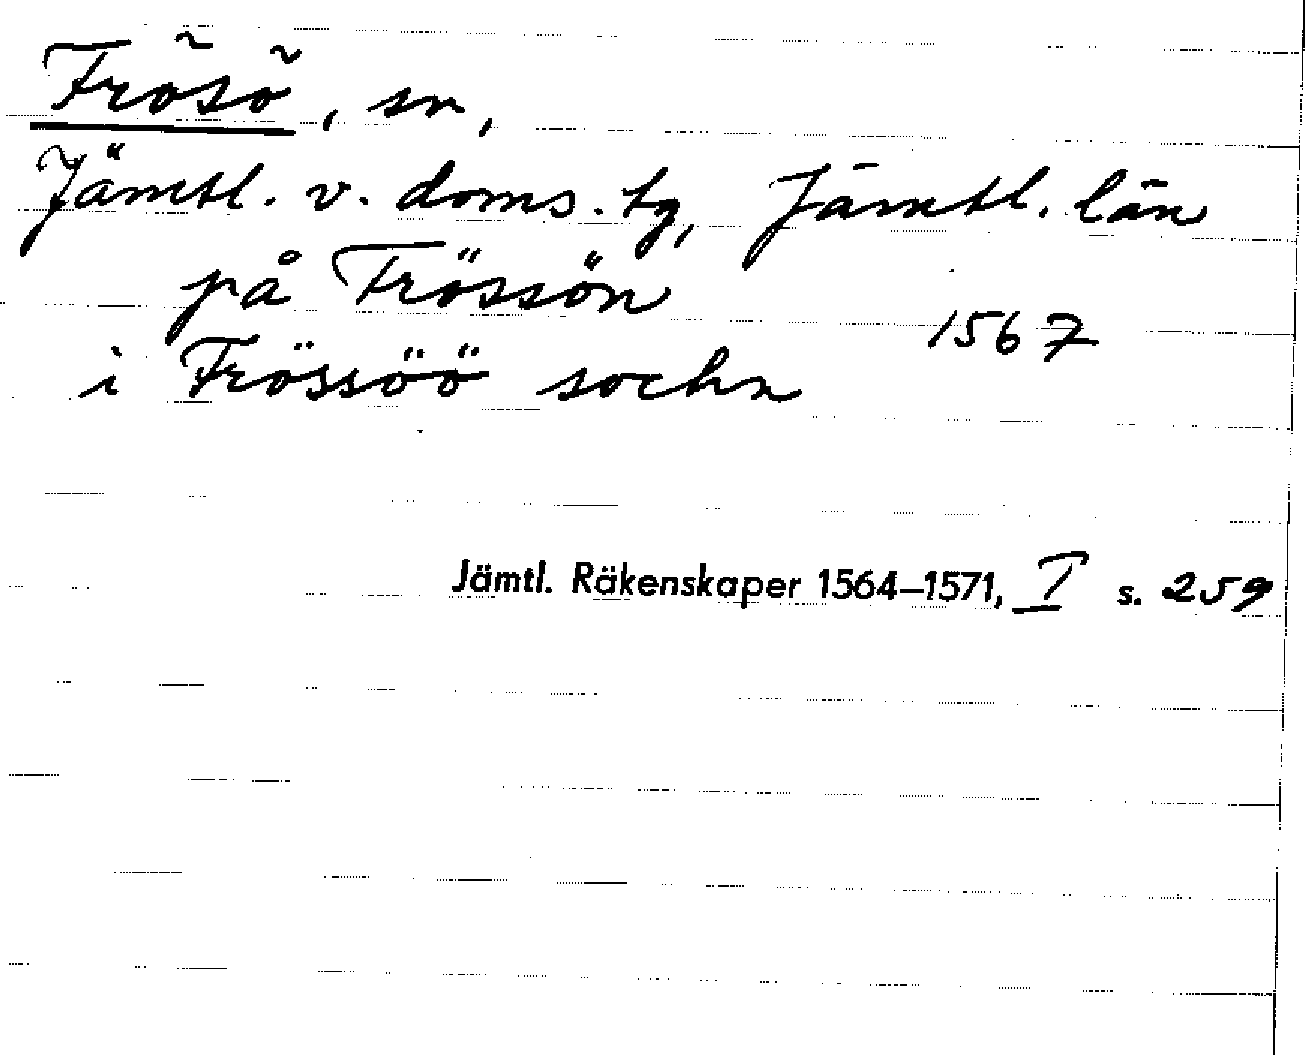 Frösö, sn,
Jämtl. v. doms. tg, Jämtl. län
på Frössön
1567
i Frössöö sochn
Jämtl. Räkenskaper 1564–1571, I s. 259